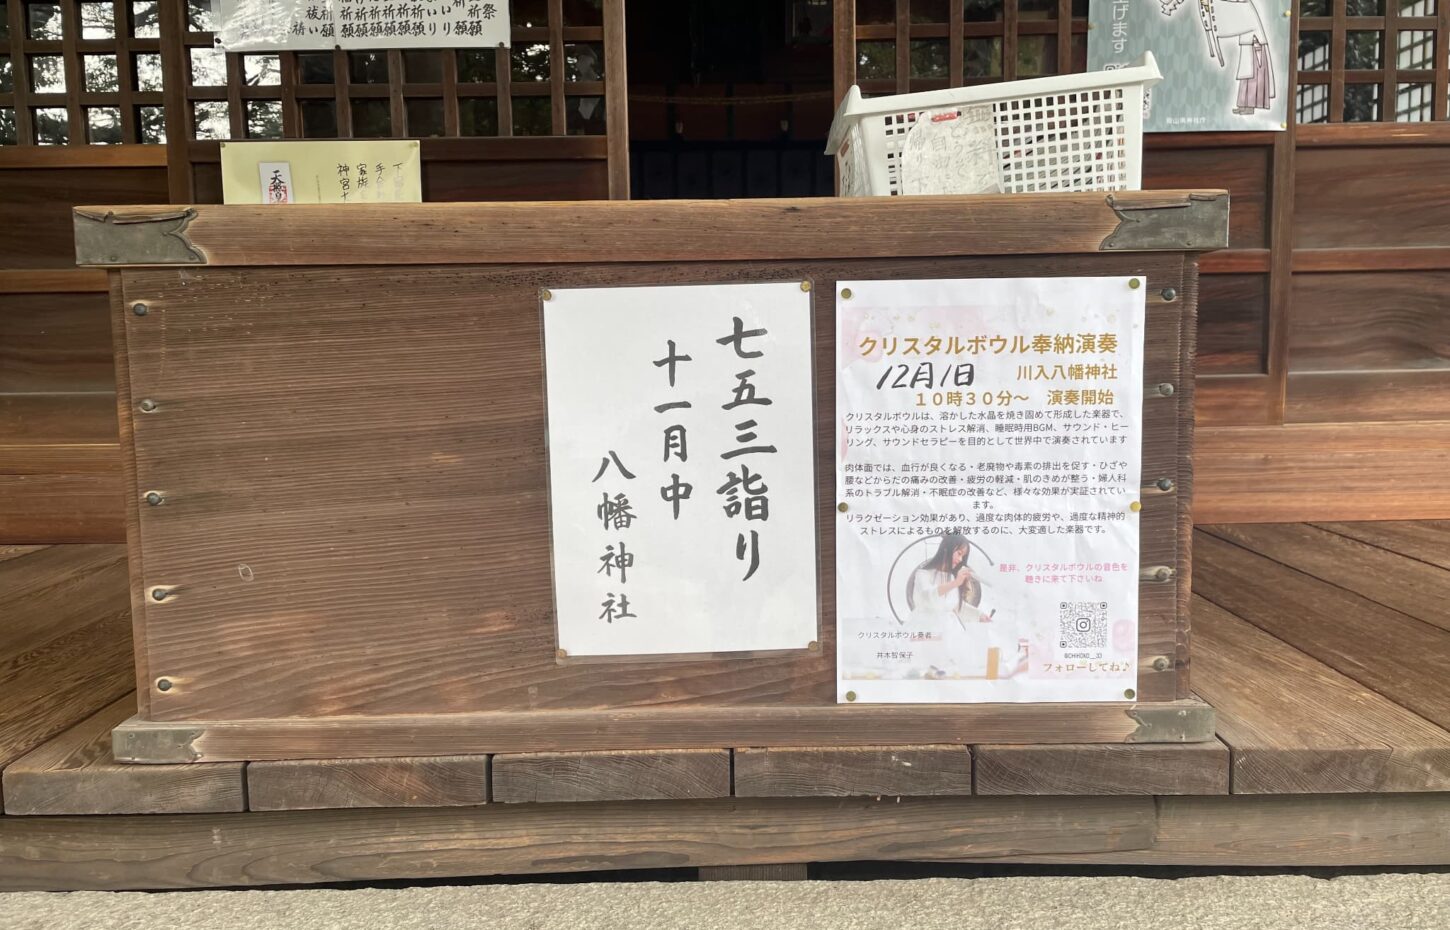 七五三詣り
十一月中
八幡神社
クリスタルボウル奉納演奏
12月1日
川入八幡神社
１０時３０分～　演奏開始
クリスタルボウルは、溶かした水晶を焼き固めて形成した楽器で、
リラックスや心身のストレス解消、睡眠時用BGM、サウンド・ヒー
リング、サウンドセラピーを目的として世界中で演奏されています
肉体面では、血行が良くなる・老廃物や毒素の排出を促す・ひざや
腰などからだの痛みの改善・疲労の軽減・肌のきめが整う・婦人科
系のトラブル解消・不眠症の改善など、様々な効果が実証されてい
ます。
リラクゼーション効果があり、過度な肉体的疲労や、過度な精神的
ストレスによるものを解放するのに、大変適した楽器です。
是非、クリスタルボウルの音色を
聴きに来て下さいね
クリスタルボウル奏者
井本智保子
フォローしてね♪